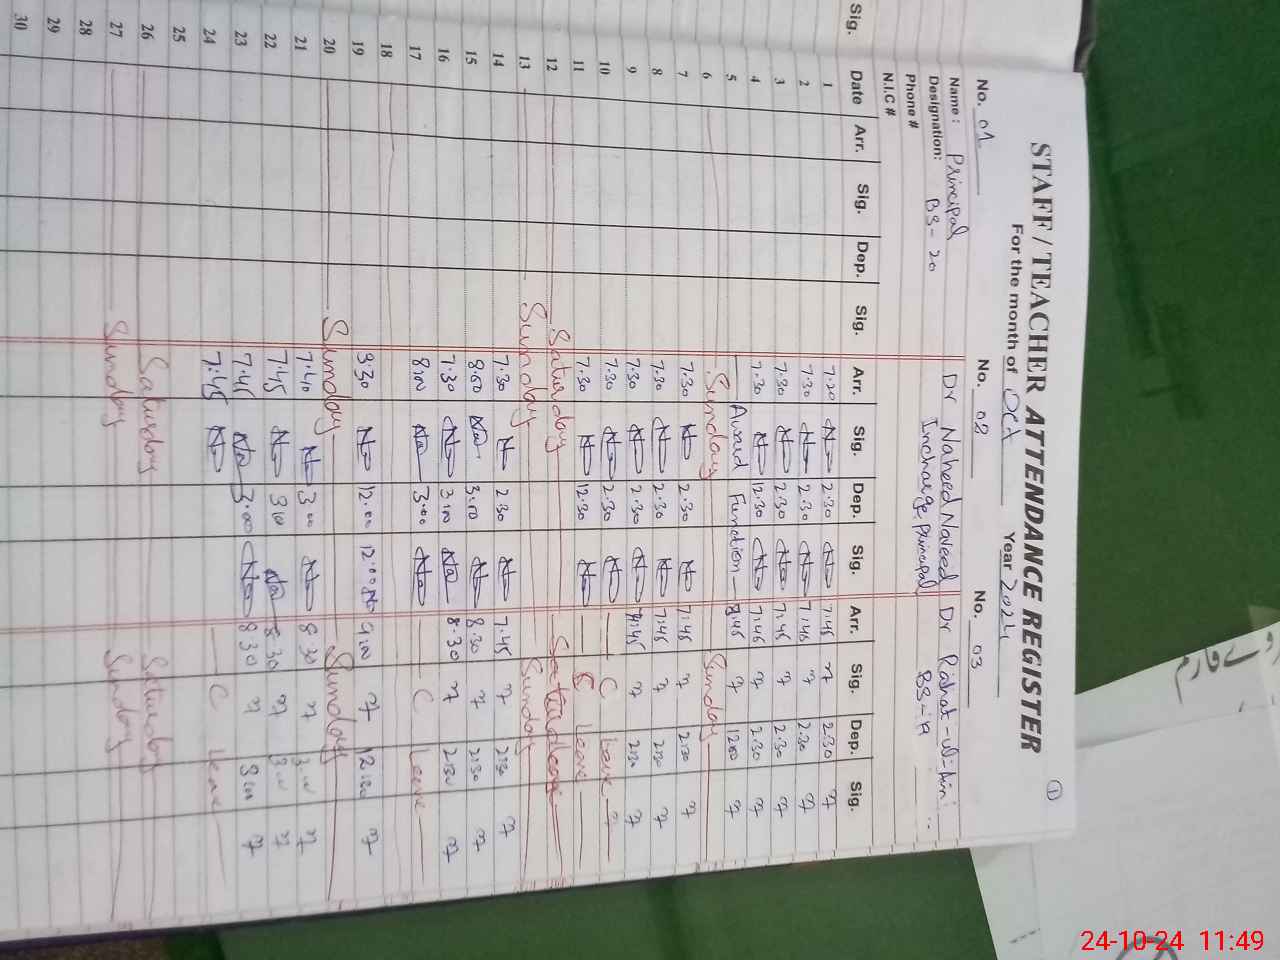 STAFF / TEACHER ATTENDANCE REGISTER
For the month of Oct Year 2024
No. 01 No. 02 No. 03
Name: Principal Dr Naheed Naveed Dr Rahat-ul-Ain
Designation: BS-20 Incharge principal BS-19
Phone #
N.I.C #
Sig. Date Arr. Sig. Dep. Sig. Arr. Sig. Dep. Sig. Arr. Sig. Dep. Sig.
1 7.20 2.30 7:45 2.30
2 7.30 2.30 7:45 2.30
3 7.30 2.30 7:45 2.30
4 7.30 12.30 7:45 2.30
5 Award Function 8:45
6 Sunday Sunday
7 7.30 2.30 7:45 2:30
8 7.30 2.30 7:45 2:30
9 7.30 2.30 7:45 2:30
10 7.30 2.30 C Leave
11 7.30 12.30 C Leave
12 Saturday
13 Sunday Sunday
14 7.30 2.30 7.45 2:30
15 8.00 3.00 8.30 2:30
16 7.30 3.00 8.30 2:30
17 8.00 3.00 C Leave
18
19 12.00 12:00 9.00
20 Sunday Sunday
21 7.40 3.00 8.30 3.00
22 7.45 8.30
23 7.45 3.00 8.30
24 7:45 C Leave
25
26 Saturday Saturday
27 Sunday Sunday
28
29
30
24-10-24 11:49